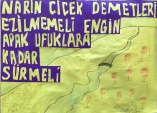 NARİN ÇİÇEK DEMETLERİ
EZİLMEMELİ ENGİN
AYAK UFUKLARA
KADAR
SÜRMELİ